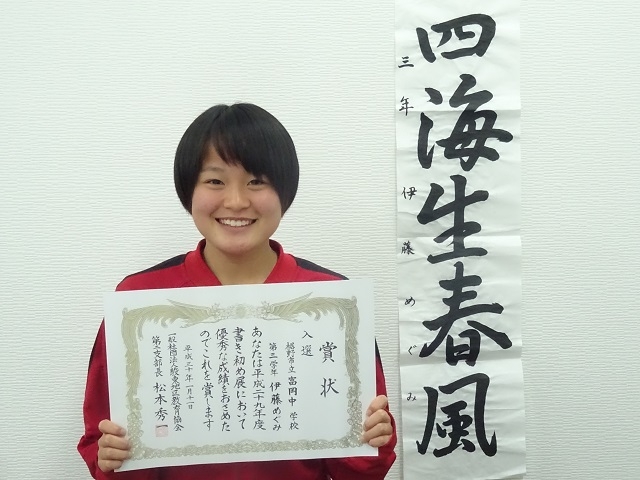 四海生春風
三年 伊藤めぐみ
賞状
入選
裾野市立 富岡中 学校
第三学年 伊藤めぐみ
あなたは平成二十九年度
書き初め展において
優秀な成績をおさめた
のでこれを賞します
平成三十年一月十一日
一般社団法人駿東地区教育協会
第二支部長 松本秀一